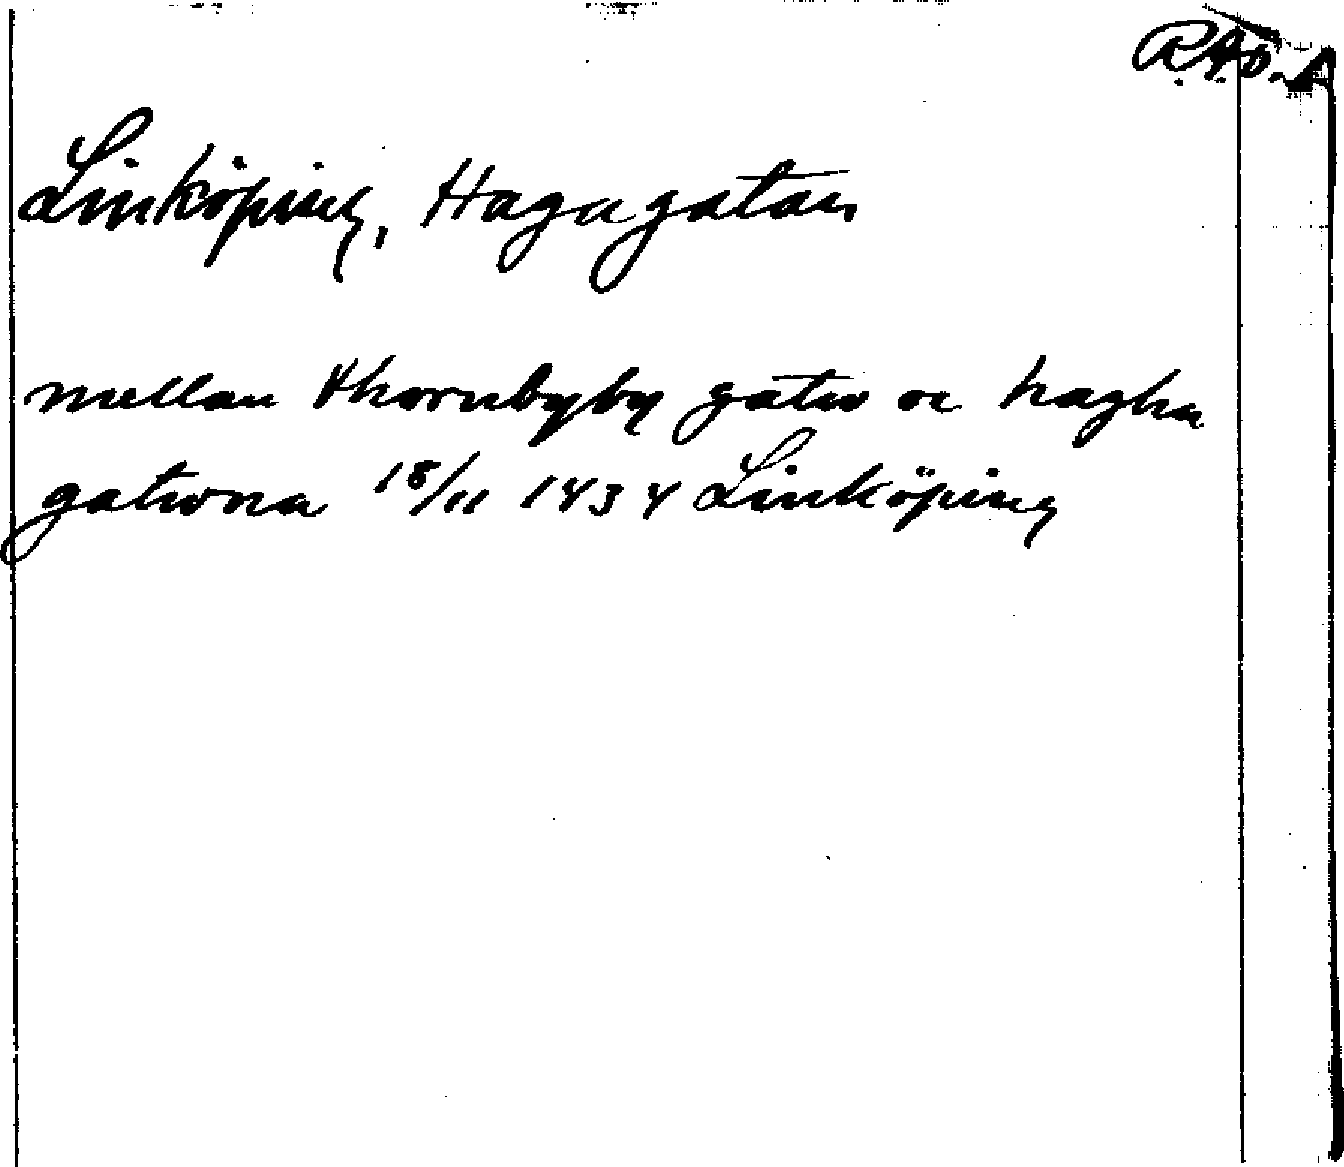 R.A.O.
Linköping, Hagagatan
mellan thornbyby gatw oc hagha
gatwna 18/11 1434 Linköping